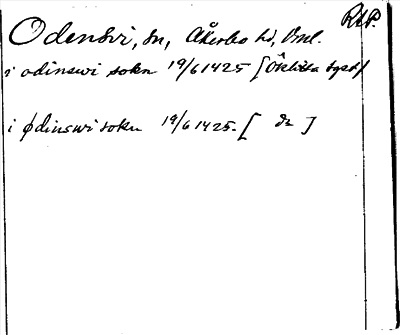 RAP.
Odensvi, sn, Åkerbo hd, Vml.
i odinswi sokn 19/6 1425 [Öklista
i ødinswi sokn 19/6 1425. [ do ]